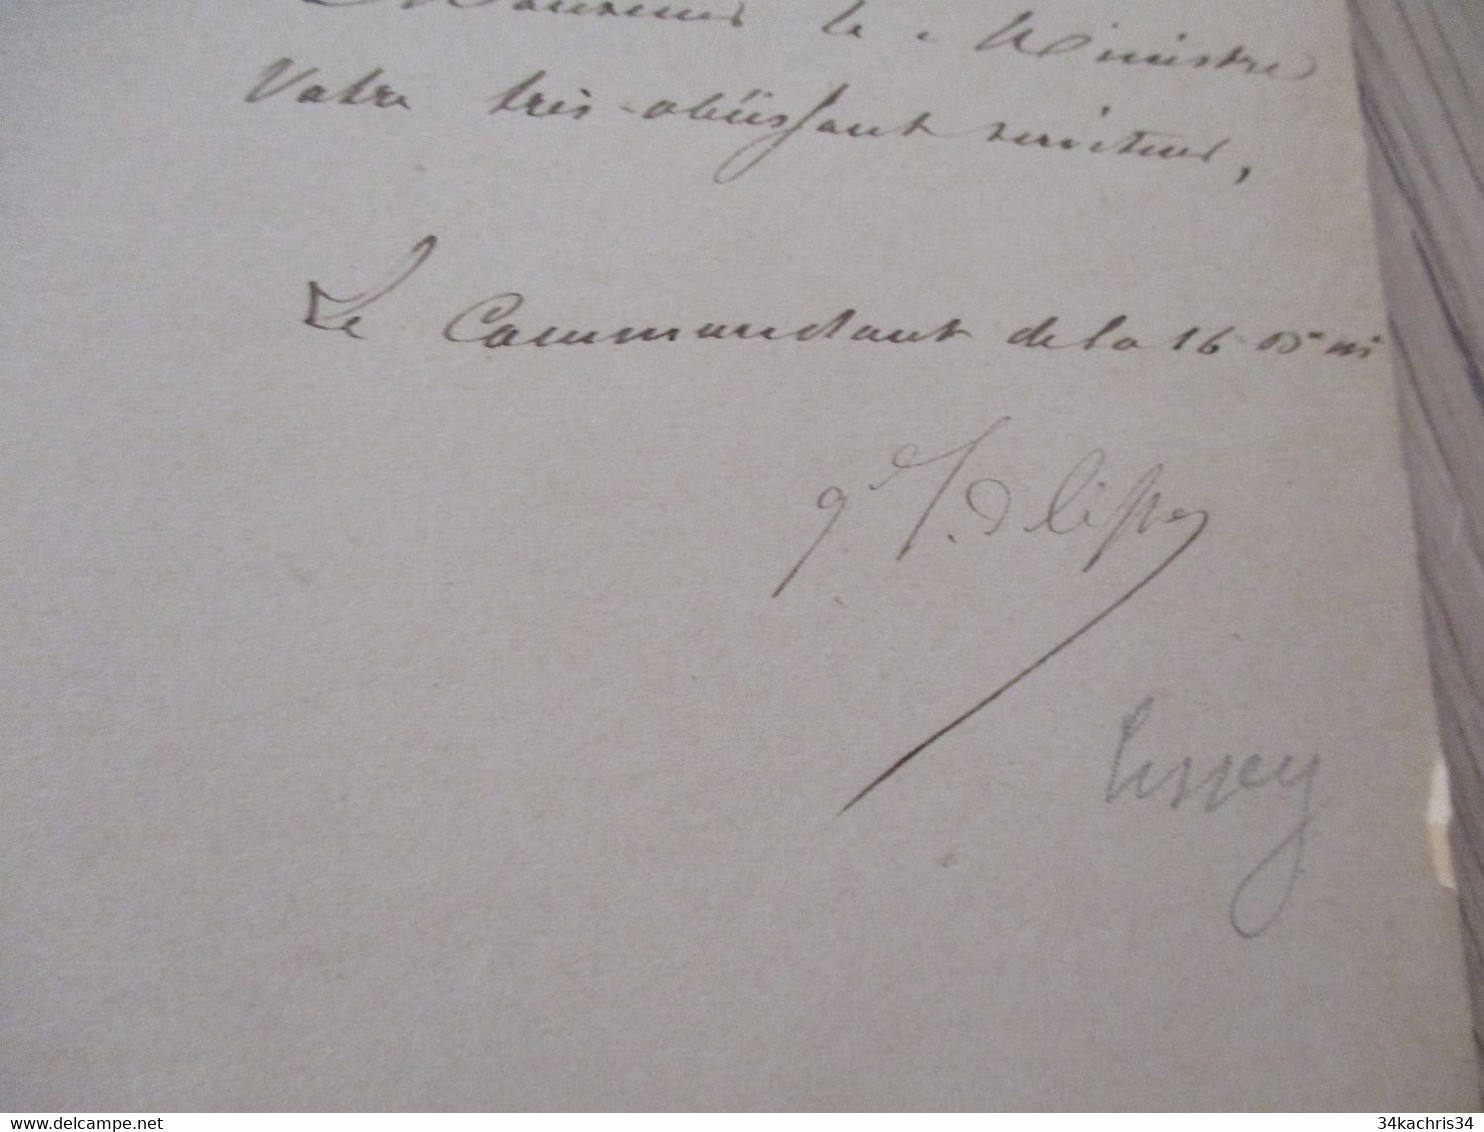 Monsieur le Ministre
Votre très-obéissant serviteur,
Le Commandant de la 16 Don mi
Gal. de Cissey
Cissey
delcampe.net
34kachris34